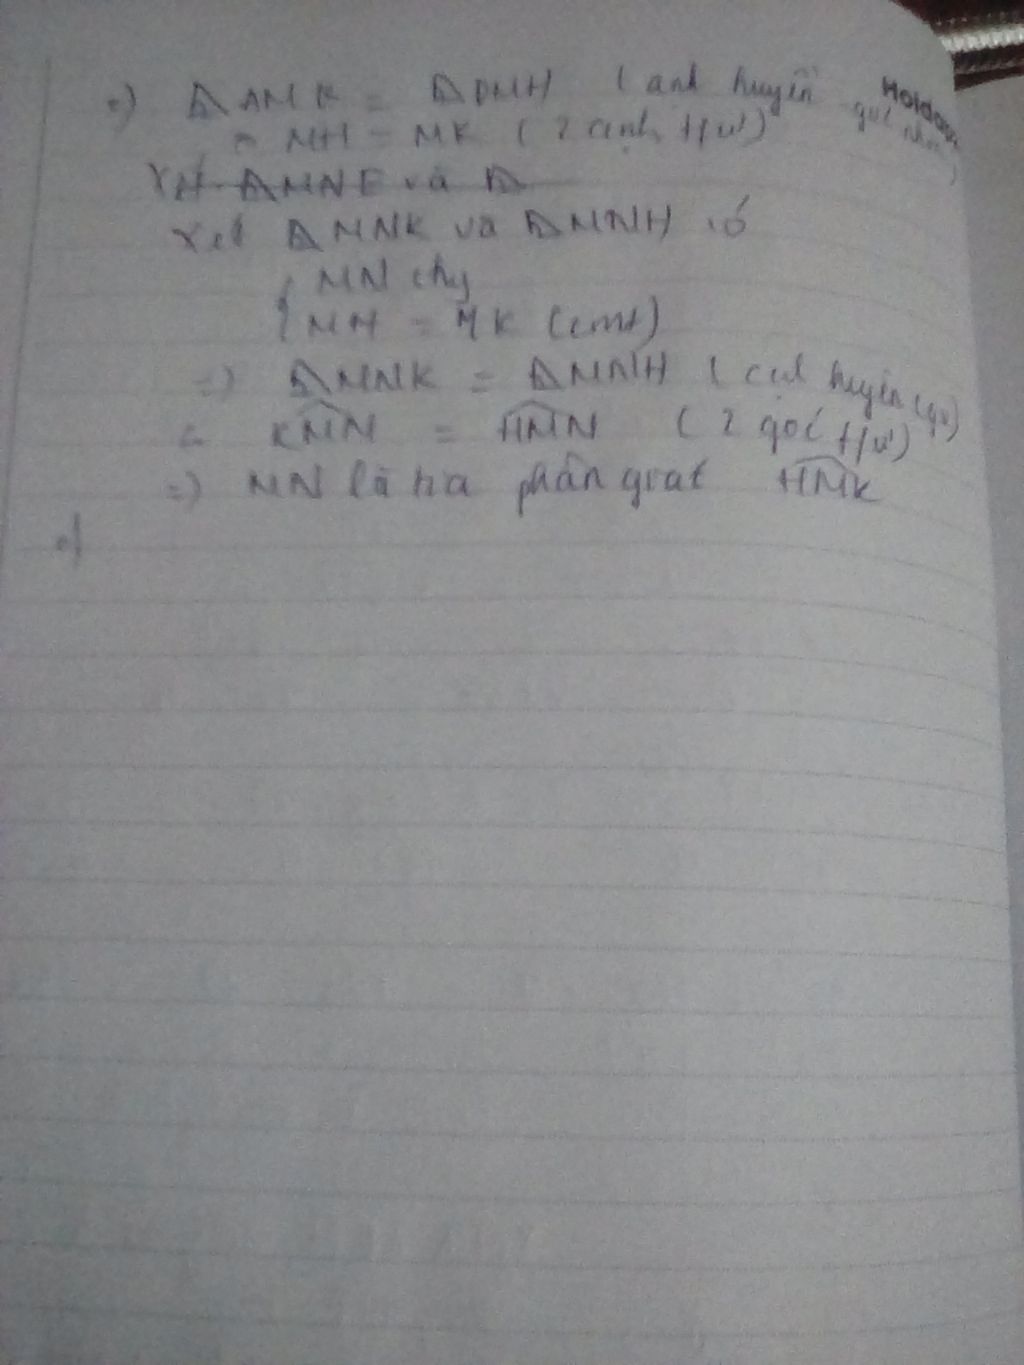 =) ΔAMK = ΔDMH (cạnh huyền góc nhọn)
Holdo
= MH = MK (2 cạnh t/ư)
Xét ΔMNE và Δ
Xét ΔMNK và ΔMNH có
{ MN chg
MH = MK (cmt)
=) ΔMNK = ΔMNH (cạh huyền cgv)
= KMN = HMN (2 góc t/ư)
=) MN là tia phân giác HMK
e)